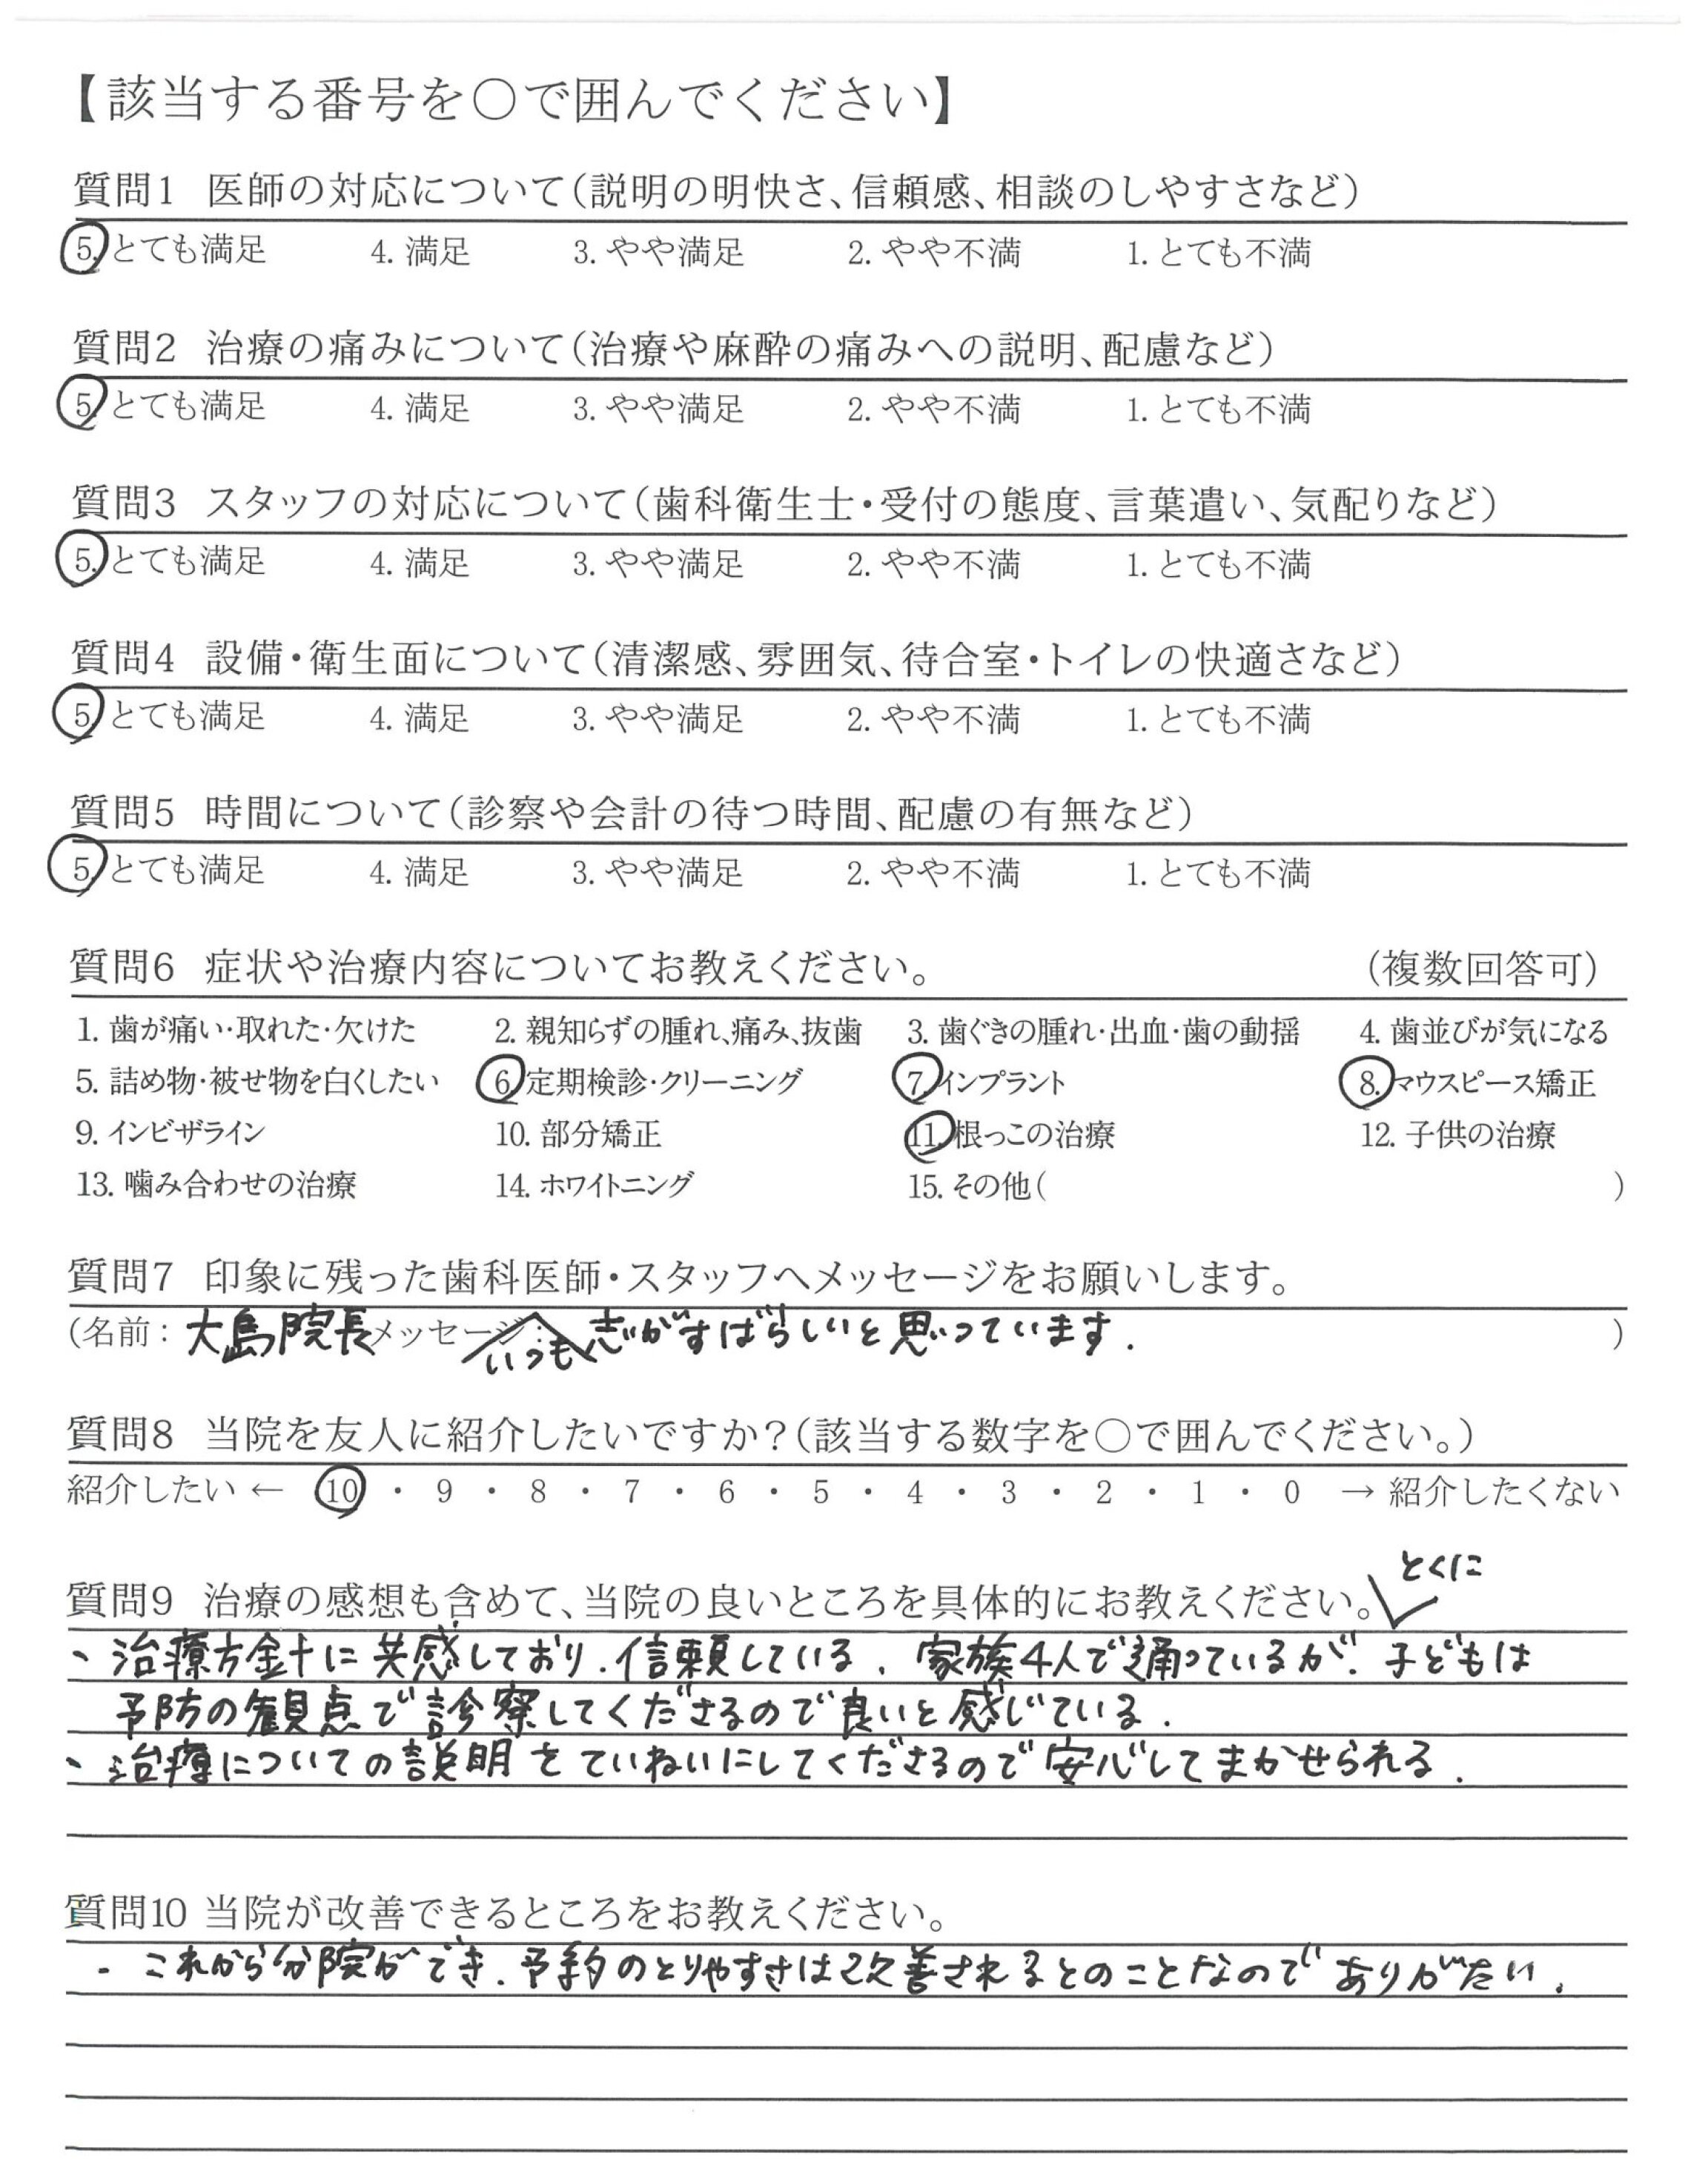 【該当する番号を○で囲んでください】
質問1 医師の対応について（説明の明快さ、信頼感、相談のしやすさなど）
5. とても満足 4. 満足 3. やや満足 2. やや不満 1. とても不満
質問2 治療の痛みについて（治療や麻酔の痛みへの説明、配慮など）
5. とても満足 4. 満足 3. やや満足 2. やや不満 1. とても不満
質問3 スタッフの対応について（歯科衛生士・受付の態度、言葉遣い、気配りなど）
5. とても満足 4. 満足 3. やや満足 2. やや不満 1. とても不満
質問4 設備・衛生面について（清潔感、雰囲気、待合室・トイレの快適さなど）
5. とても満足 4. 満足 3. やや満足 2. やや不満 1. とても不満
質問5 時間について（診察や会計の待つ時間、配慮の有無など）
5. とても満足 4. 満足 3. やや満足 2. やや不満 1. とても不満
質問6 症状や治療内容についてお教えください。 （複数回答可）
1. 歯が痛い・取れた・欠けた 2. 親知らずの腫れ、痛み、抜歯 3. 歯ぐきの腫れ・出血・歯の動揺 4. 歯並びが気になる
5. 詰め物・被せ物を白くしたい 6. 定期検診・クリーニング 7. インプラント 8. マウスピース矯正
9. インビザライン 10. 部分矯正 11. 根っこの治療 12. 子供の治療
13. 噛み合わせの治療 14. ホワイトニング 15. その他（ ）
質問7 印象に残った歯科医師・スタッフへメッセージをお願いします。
（名前：大島院長 メッセージ：いつも志がすばらしいと思っています. ）
質問8 当院を友人に紹介したいですか？（該当する数字を○で囲んでください。）
紹介したい ← 10 ・ 9 ・ 8 ・ 7 ・ 6 ・ 5 ・ 4 ・ 3 ・ 2 ・ 1 ・ 0 → 紹介したくない
とくに
質問9 治療の感想も含めて、当院の良いところを具体的にお教えください。
、治療方針に共感しており. 信頼している. 家族4人で通っているが. 子どもは
予防の観点で診察してくださるので良いと感じている.
、治療についての説明をていねいにしてくださるので安心してまかせられる.
質問10 当院が改善できるところをお教えください。
- これから分院ができ. 予約のとりやすさは改善されるとのことなのでありがたい.